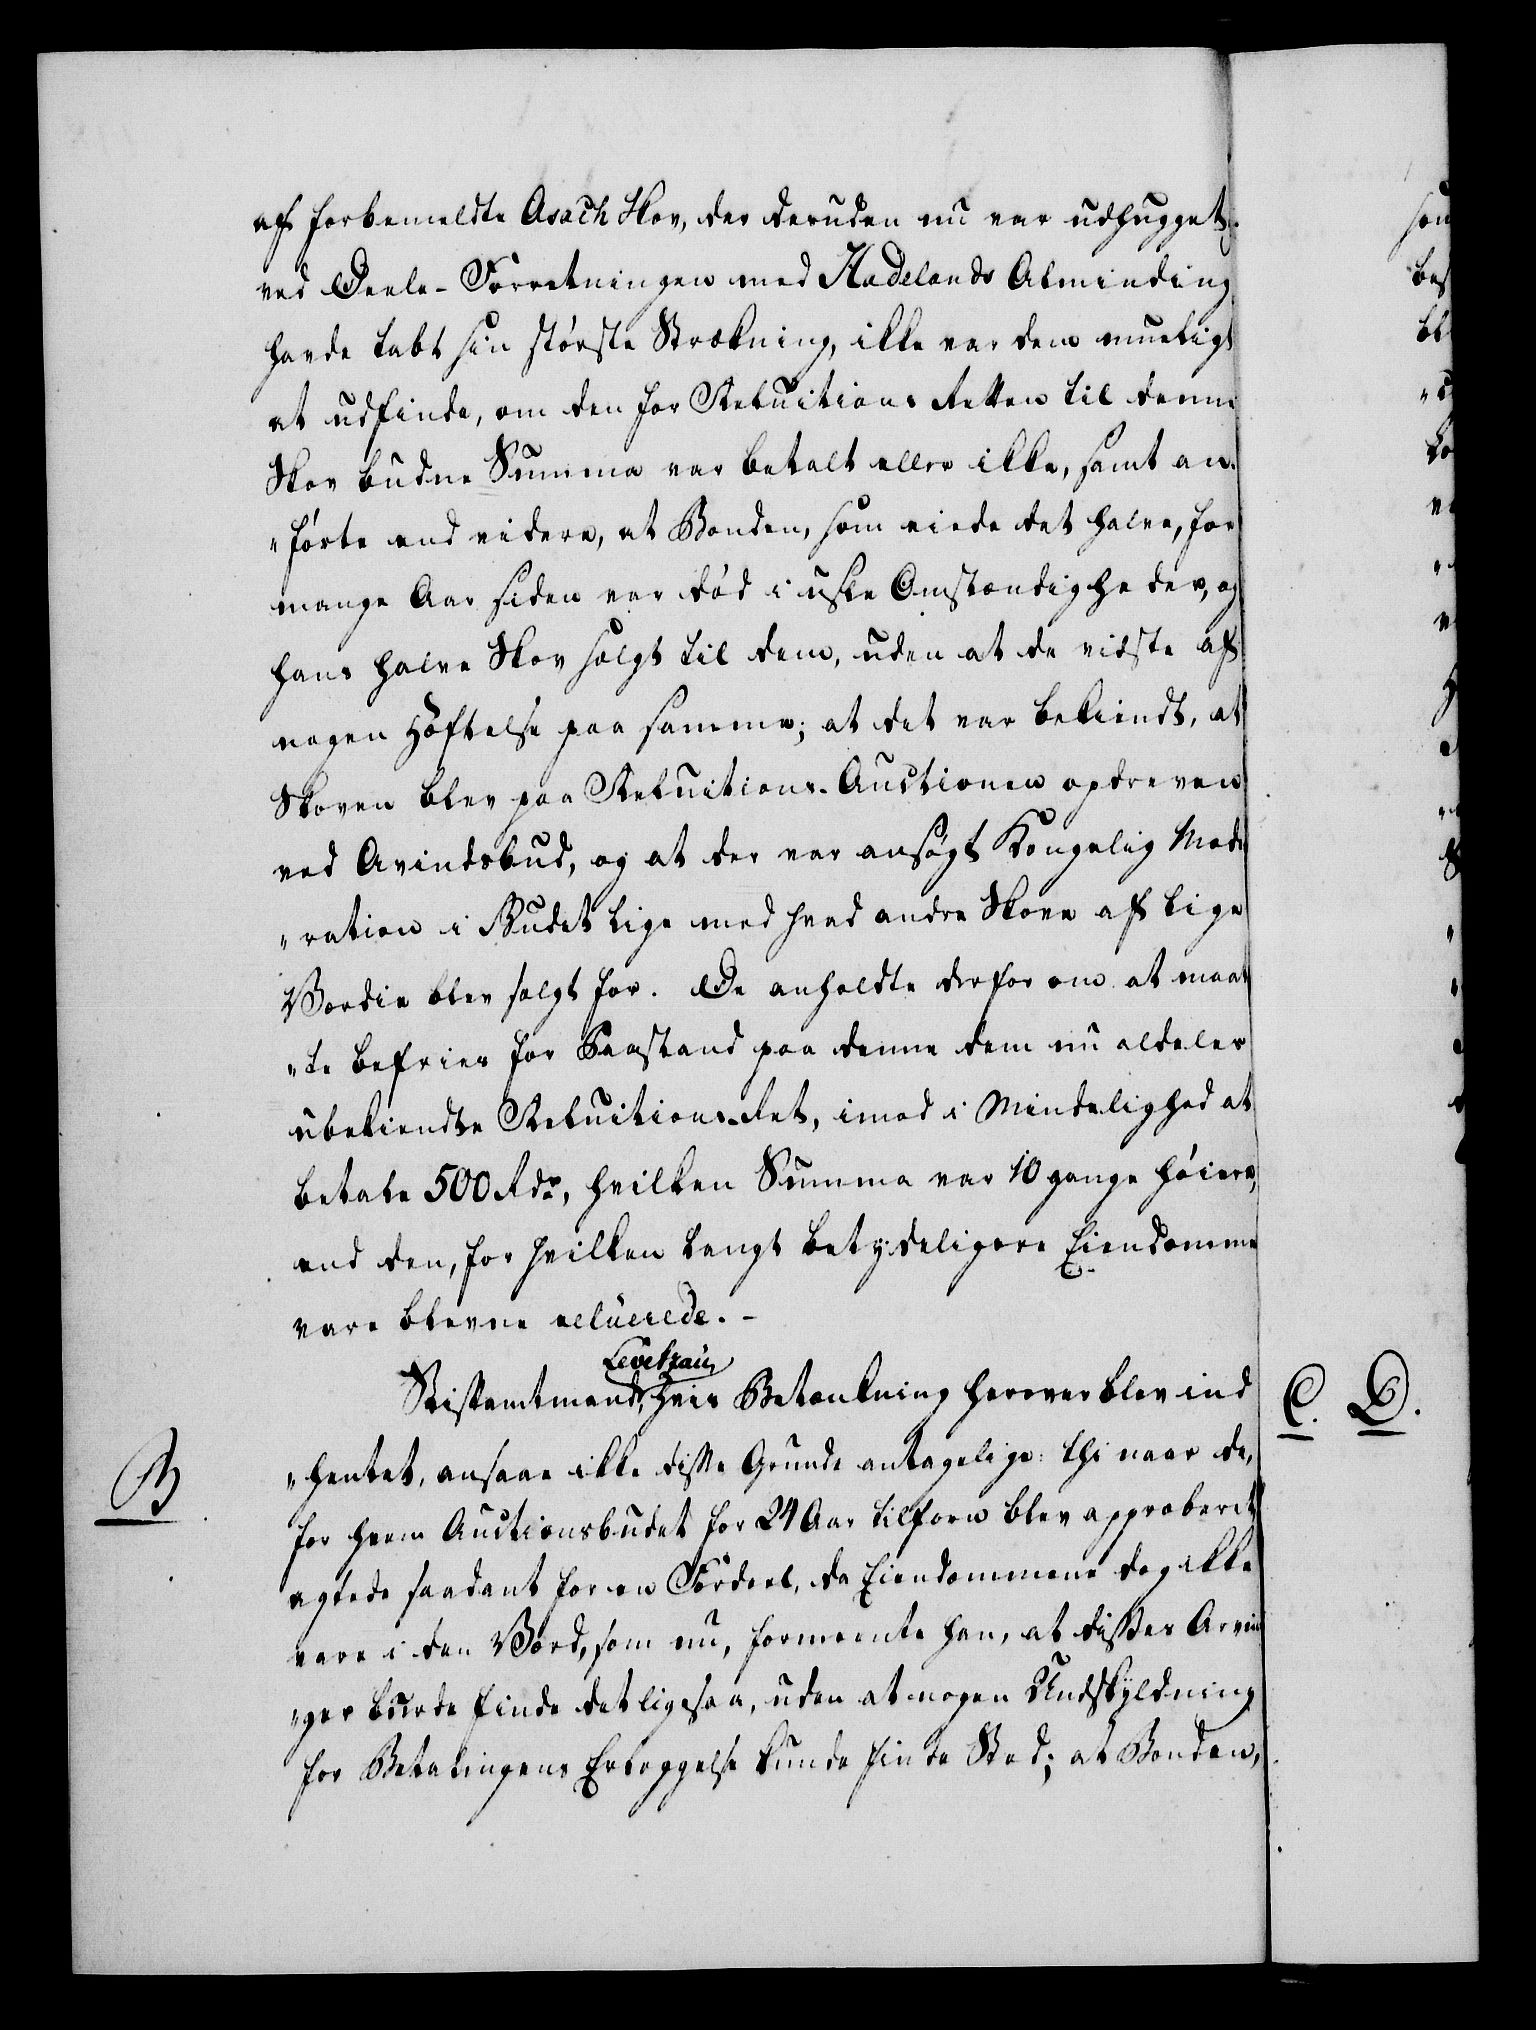 af forbemeldte Asach Skov, der deruden nu var udhugget,
ved Deele-Forretningen med Hadelands Alminding
havde tabt sin største Strækning, ikke var dem mueligt
at udfinde, om den for Reluitions Retten til denne
Skov budne Summa var betalt eller ikke, samt an-
"førte end videre, at Bonden, som eiede det halve, for
mange Aar siden var død i usle Omstændigheder, og
hans halve Skov solgt til dem, uden at de vidste af
nogen Hæftelse paa samme; at det var bekiendt, at
Skoven blev paa Reluitions-Auctionen opdreven
ved Avindsbud, og at der var ansøgt Kongelig Mode
"ration i Budet lige med hvad andre Skove af lige
Værdie blev solgt for. De anholdte derfor om at maat
"te befries for Paastand paa denne dem nu aldeles
ubekiendte Reluitions-Ret, imod i Mindelighed at
betale 500 Rdr, hvilken Summa var 10 gange høiere,
end den, for hvilken langt betydeligere Eiendomme
vare blevne reluerede. -
Levetzau
Stiftamtmand, hvis Betænkning herover blev ind
"hentet, ansaae ikke disse Grunde antagelige: thi naar de,
for hvem Auctionsbudet for 24 Aar tilforn blev approberet
agtede saadant for en Fordeel, da Eiendommene dog ikke
vare i den Værd, som nu, formeente han, at disses Arvin
"ger burde finde det ligesaa, uden at nogen Undskyldning
for Betalingens Erlæggelse kunde finde Sted; at Bonden,
B
C. D.